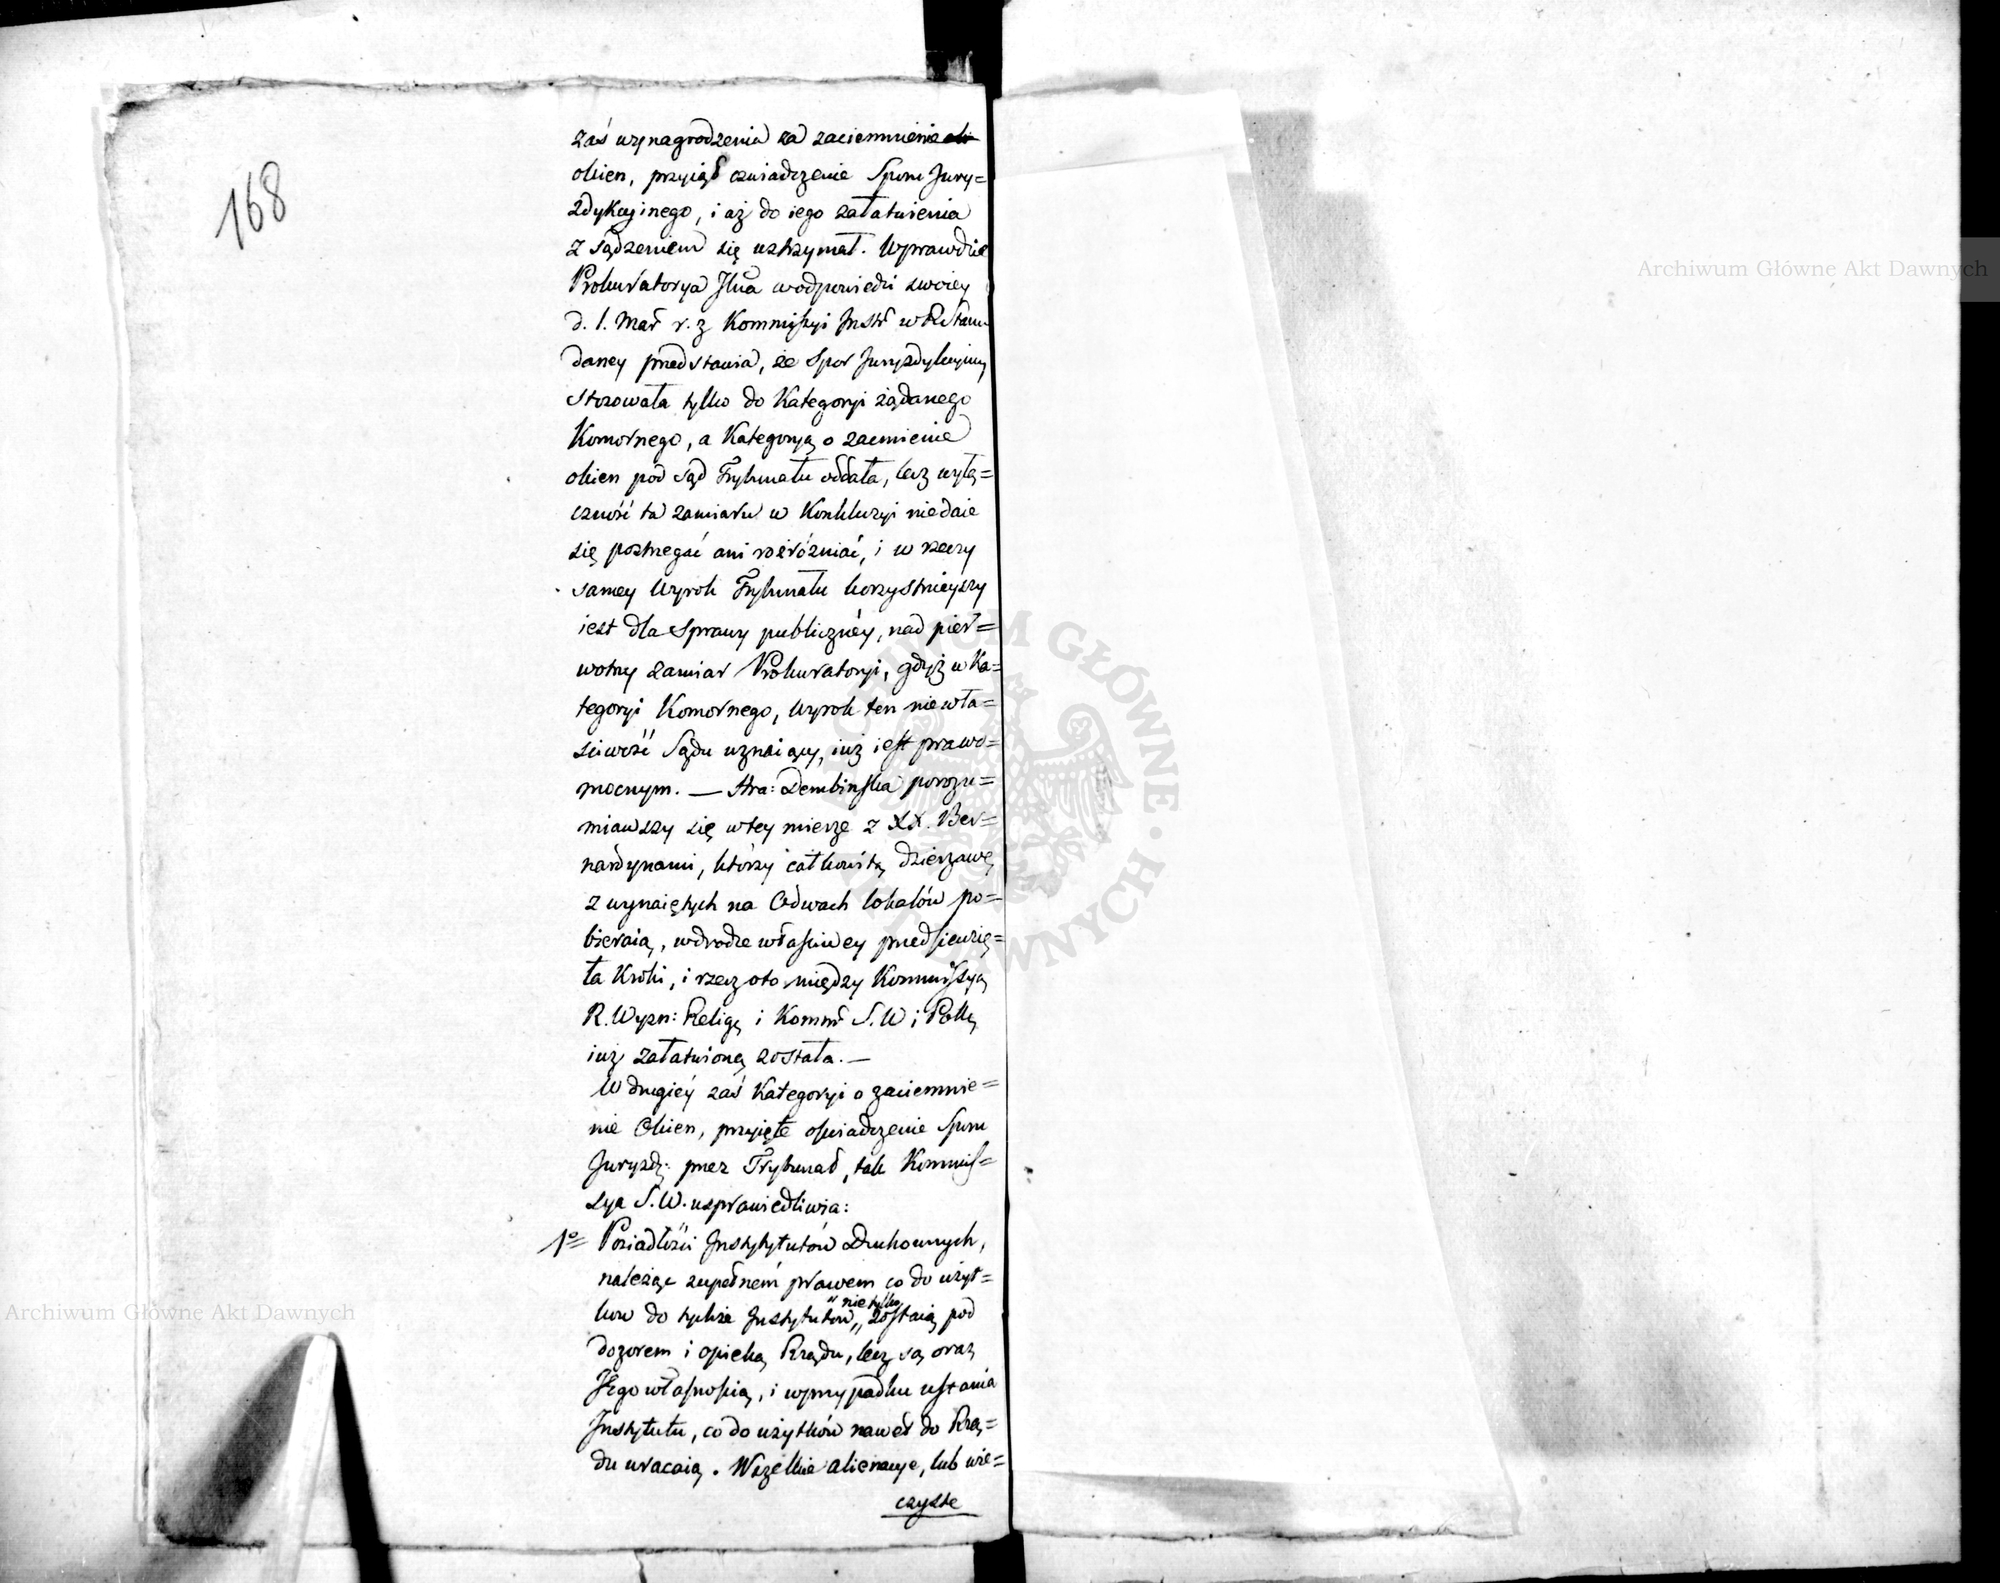 168
zaś wynagrodzenia za zaciemnienie
okien, przyiął oświadczenie Sporu Jury=
zdykcyinego, i aż do iego załatwienia
z sądzeniem się wstrzymał. Wprawdzie
Prokuratorya Jlna w odpowiedzi swoiey
d. 1. Mar r. z Kommissyi Instr w
daney przedstawia, że Spor Juryzdykcyiny
stosowała tylko do Kategoryi żądanego
Komornego, a Kategoryą o zaćmienie
okien pod sąd Trybunału oddała, lecz wyłą=
czność ta zamiaru w Konkluzyi niedaie
się postrzegać ani rozróżniać, i w rzeczy
samey Wyrok Trybunału korzystnieyszy
iest dla Sprawy publiczney, nad pier=
wotny zamiar Prokuratoryi, gdyż w Ka=
tegoryi Komornego, Wyrok ten niewła=
ściwość Sądu uznaiący, iuż iest prawo=
mocnym. — Hra: Dembinska porozu=
miawszy się w tey mierze z XX. Ber=
nardynami, którzy całkowitą dzierzawę
z wynaiętych na Odwach lokalów po=
bieraią, w drodze właściwey przedsięwzię=
ła Kroki, i rzecz oto między Kommissyą
R. Wyzn: Relig. i Komm S. W i Polcy
iuż załatwioną została. —
W drugiéy zaś Kategoryi o zaciemnie=
nie Okien, przyięte oświadczenie Sporu
Juryzdy: przez Trybunał, tak Kommis=
sya S. W. usprawiedliwia:
1º= Posiadłości Instytutów Duchownych,
należąc zupełném prawem co do użyt=
ków do tychże Instytutów, nie tylko zostaią pod
dozorem i opieką Rządu, lecz są oraz
Jego własnością, i w przypadku ustania
Instytutu, co do użytków nawet do Rzą=
du wracaią. Wszelkie alienacye, lub wie=
czyste
Archiwum Główne Akt Dawnych
Archiwum Główne Akt Dawnych